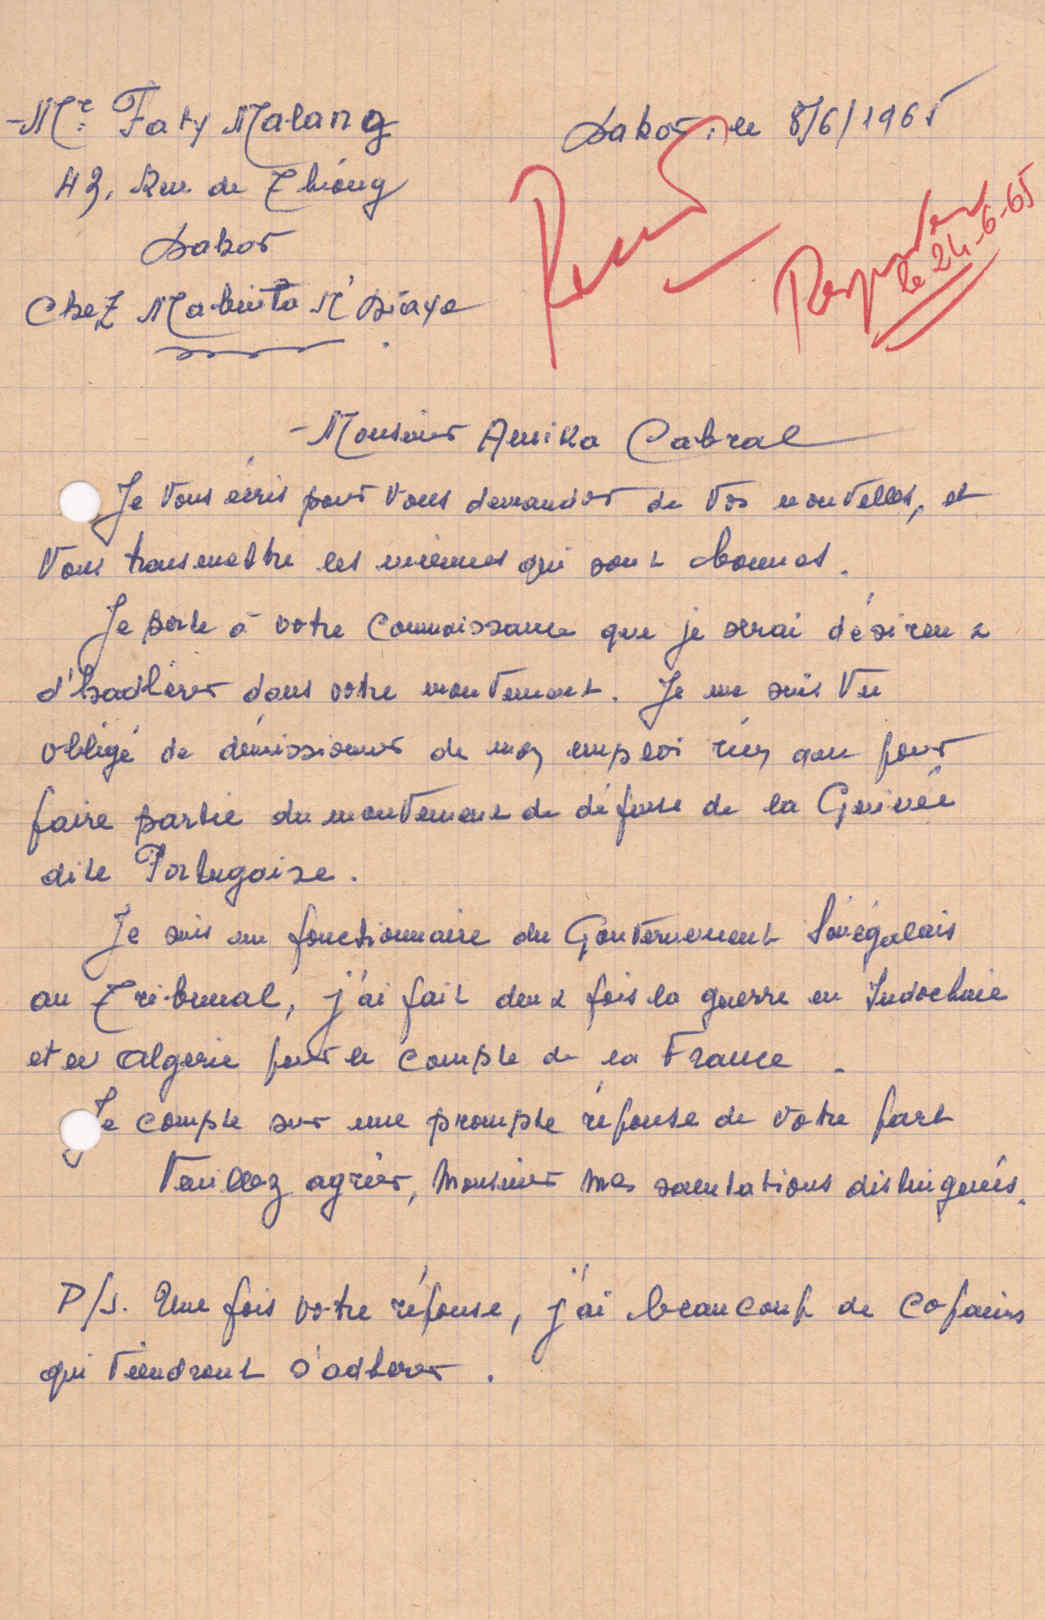 Mr: Faty Malang
43, Rue de Thiong
Dakar
Chez Mabinta N'Diaye
Dakar, le 8/6/1965
le 24-6-65
Monsieur Amika Cabral
Je vous écris pour vous demander de vos nouvelles, et
vous transmettre les miennes qui sont bonnes.
Je porte à votre connaissance que je serai désireux
d'hadhérer dans votre mouvement. Je me suis vu
obligé de démissionner de mon emploi rien que pour
faire partie du mouvement de défense de la Guinée
dite Portugaise.
Je suis un fonctionnaire du Gouvernement Sénégalais
au Tribunal, j'ai fait deux fois la guerre en Indochine
et en Algerie pour le compte de la France.
Je compte sur une prompte réponse de votre part
Veuillez agréer, Monsieur mes salutations distinguées.
P/S. Une fois votre réponse, j'ai beaucoup de copains
qui viendront s'adherer.